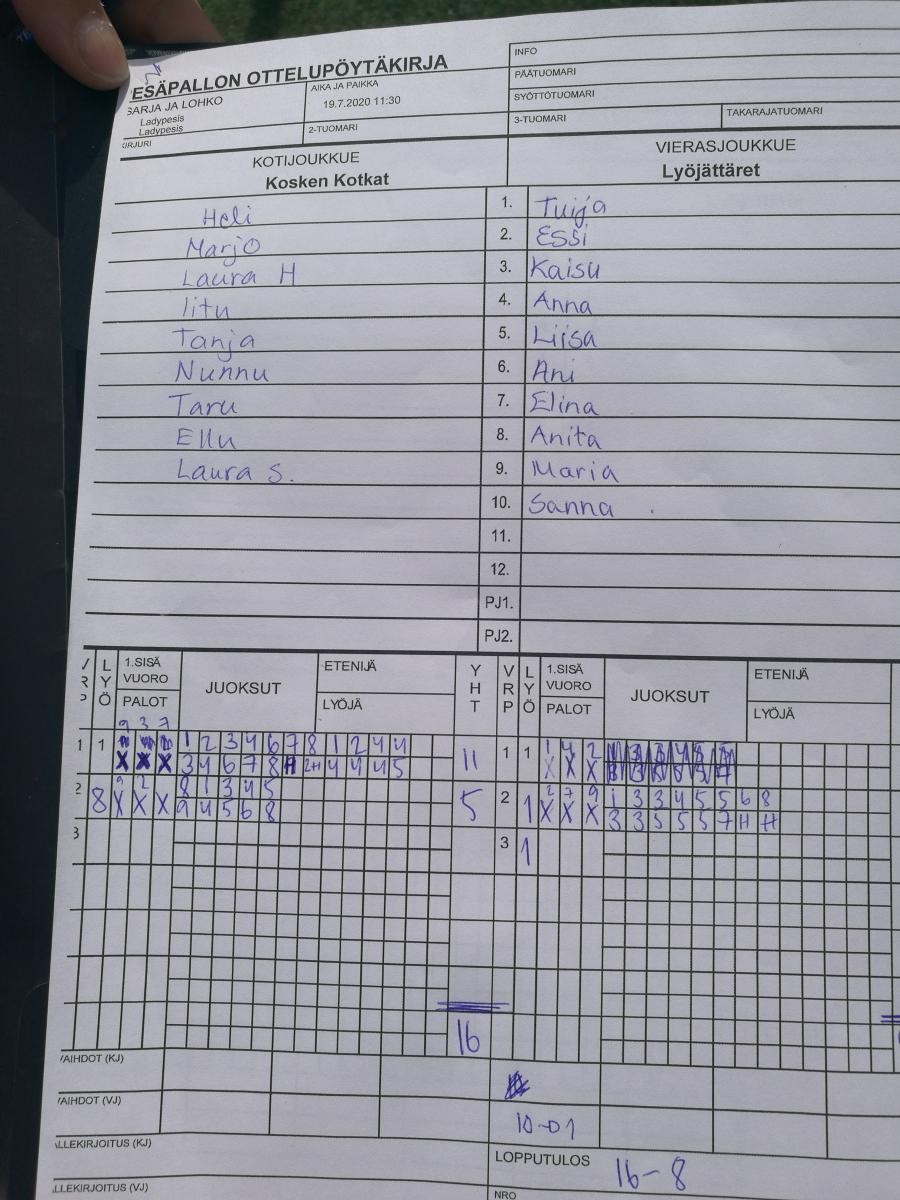 ESÄPALLON OTTELUPÖYTÄKIRJA
SARJA JA LOHKO
Ladypesis
Ladypesis
AIKA JA PAIKKA
19.7.2020 11:30
2-TUOMARI
INFO
PÄÄTUOMARI
SYÖTTÖTUOMARI
3-TUOMARI
TAKARAJATUOMARI
KOTIJOUKKUE
Kosken Kotkat
VIERASJOUKKUE
Lyöjättäret
Heli 1. Tuija
Marjo 2. Essi
Laura H 3. Kaisu
Iitu 4. Anna
Tanja 5. Liisa
Nunnu 6. Ani
Taru 7. Elina
Ellu 8. Anita
Laura S. 9. Maria
10. Sanna
11.
12.
PJ1.
PJ2.
LYÖ 1.SISÄ VUORO PALOT JUOKSUT ETENIJÄ LYÖJÄ YHT VRP LYÖ 1.SISÄ VUORO PALOT JUOKSUT ETENIJÄ LYÖJÄ
9 3 7
1 1 1 2 3 4 6 7 8 1 2 4 4 11 1 1 1 4 2
X X X 3 4 6 7 8 H 2H 4 4 4 5 X X X
2 8 9 2 8 1 3 4 5 5 2 1 2 7 9 1 3 3 4 5 5 6 8
X X X 9 4 5 6 8 X X X 3 3 5 5 5 7 H H
3 3 1
16
AIHDOT (KJ)
AIHDOT (VJ)
10-01
LLEKIRJOITUS (KJ)
LOPPUTULOS 16-8
LLEKIRJOITUS (VJ)
NRO